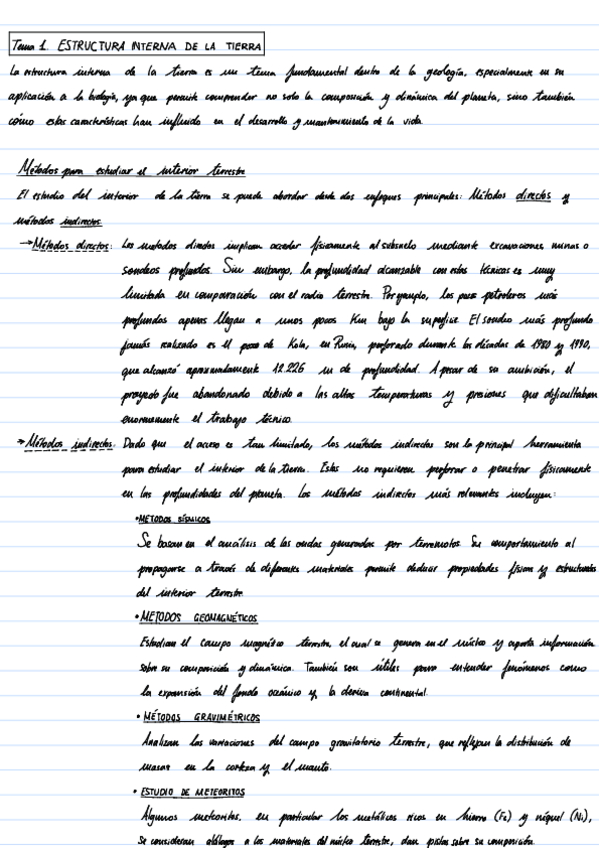 Tema 1. ESTRUCTURA INTERNA DE LA TIERRA
La estructura interna de la tierra es un tema fundamental dentro de la geología, especialmente en su
aplicación a la biología, ya que permite comprender no solo la composición y dinámica del planeta, sino también
cómo estas características han influido en el desarrollo y mantenimiento de la vida.
Métodos para estudiar el interior terrestre
El estudio del interior de la tierra se puede abordar desde dos enfoques principales: Métodos directos y
métodos indirectos.
→ Métodos directos: Los metodos directos implican acceder físicamente al subsuelo mediante excavaciones, minas o
sondeos profundos. Sin embargo, la profundidad alcanzable con estas técnicas es muy
limitada en comparación con el radio terrestre. Por ejemplo, los pozos petroleros más
profundos apenas llegan a unos pocos Km bajo la superficie. El sondeo más profundo
jamás realizado es el pozo de Kola, en Rusia, perforado durante las décadas de 1980 y 1990,
que alcanzó aproximadamente 12.226 m de profundidad. A pesar de su ambición, el
proyecto fue abandonado debido a las altas temperaturas y presiones que dificultaban
enormemente el trabajo técnico.
→ Métodos indirectos: Dado que el acceso es tan limitado, los métodos indirectos son la principal herramienta
para estudiar el interior de la tierra. Estos no requieren perforar o penetrar físicamente
en las profundidades del planeta. Los métodos indirectos más relevantes incluyen:
• MÉTODOS SÍSMICOS
Se basan en el análisis de las ondas generadas por terremotos. Su comportamiento al
propagarse a través de diferentes materiales permite deducir propiedades físicas y estructurales
del interior terrestre.
• METODOS GEOMAGNÉTICOS
Estudian el campo magnético terrestre, el cual se genera en el núcleo y aporta información
sobre su composición y dinámica. También son útiles para entender fenómenos como
la expansión del fondo oceánico y la deriva continental.
• MÉTODOS GRAVIMÉTRICOS
Analizan las variaciones del campo gravitatorio terrestre, que reflejan la distribución de
masas en la corteza y el manto.
• ESTUDIO DE METEORITOS
Algunos meteoritos, en particular los metálicos ricos en hierro (Fe) y níquel (Ni),
se consideran análogos a los materiales del núcleo terrestre, dan pistas sobre su composición.